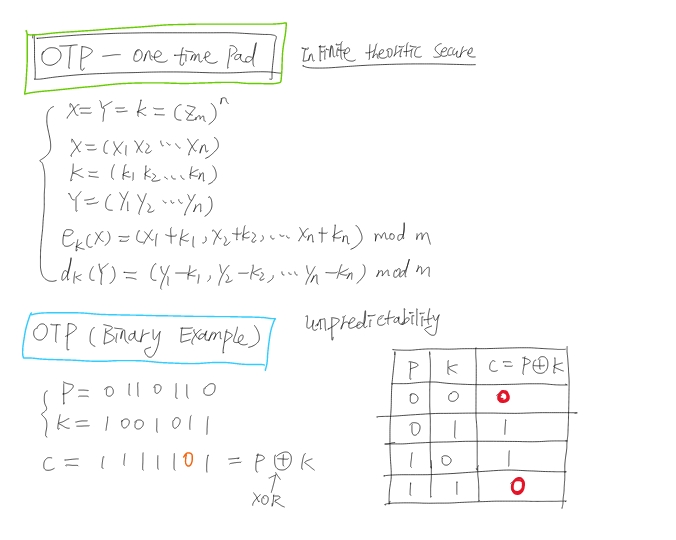 OTP — one time Pad
Infinite theoritic secure
X = Y = K = (Zm)^n
X = (X1 X2 ... Xn)
K = (k1 k2 ... kn)
Y = (Y1 Y2 ... Yn)
eK(X) = (X1 + k1, X2 + k2, ... Xn + kn) mod m
dK(Y) = (Y1 - k1, Y2 - k2, ... Yn - kn) mod m
OTP (Binary Example)
unpredictability
P = 0 1 1 0 1 1 0
K = 1 0 0 1 0 1 1
C = 1 1 1 1 1 0 1 = P ⊕ K
XOR
P K C = P ⊕ K
0 0 0
0 1 1
1 0 1
1 1 0